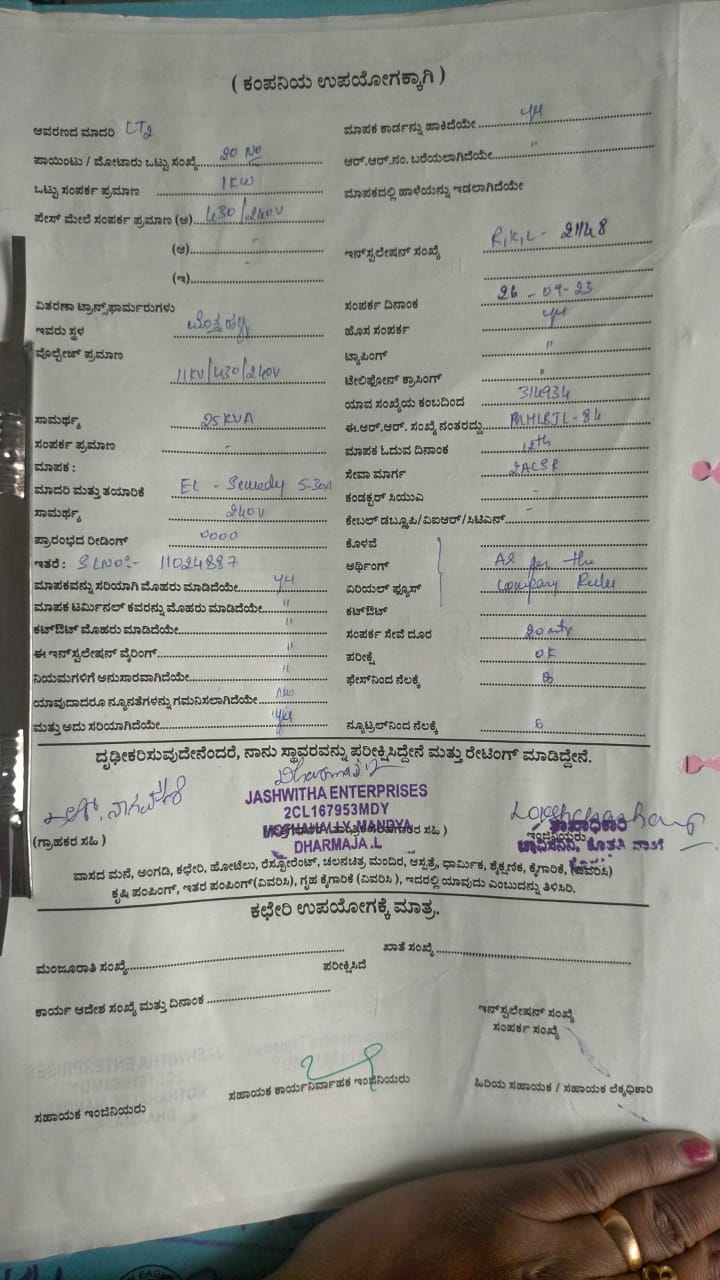 ( ಕಂಪನಿಯ ಉಪಯೋಗಕ್ಕಾಗಿ )
ಆವರಣದ ಮಾದರಿ LT2
ಪಾಯಿಂಟು / ಮೋಟಾರು ಒಟ್ಟು ಸಂಖ್ಯೆ 20 No
ಒಟ್ಟು ಸಂಪರ್ಕ ಪ್ರಮಾಣ 1KW
ಪೇಸ್ ಮೇಲೆ ಸಂಪರ್ಕ ಪ್ರಮಾಣ (ಅ) 430/240V
(ಆ) -
(ಇ) -
ವಿತರಣಾ ಟ್ರಾನ್ಸ್‌ಫಾರ್ಮರುಗಳು
ಇವರು ಸ್ಥಳ
ವೊಲ್ಟೇಜ್ ಪ್ರಮಾಣ
11KV/430/240V
ಸಾಮರ್ಥ್ಯ 25KVA
ಸಂಪರ್ಕ ಪ್ರಮಾಣ -
ಮಾಪಕ :
ಮಾದರಿ ಮತ್ತು ತಯಾರಿಕೆ EL - 5-30A
ಸಾಮರ್ಥ್ಯ 240V
ಪ್ರಾರಂಭದ ರೀಡಿಂಗ್ 0000
ಇತರೆ : SLNO:- 11024887
ಮಾಪಕವನ್ನು ಸರಿಯಾಗಿ ಮೊಹರು ಮಾಡಿದೆಯೇ yes
ಮಾಪಕ ಟರ್ಮಿನಲ್ ಕವರನ್ನು ಮೊಹರು ಮಾಡಿದೆಯೇ "
ಕಟ್‌ಔಟ್ ಮೊಹರು ಮಾಡಿದೆಯೇ "
ಈ ಇನ್‌ಸ್ಟಲೇಷನ್ ವೈರಿಂಗ್ "
ನಿಯಮಗಳಿಗೆ ಅನುಸಾರವಾಗಿದೆಯೇ "
ಯಾವುದಾದರೂ ನ್ಯೂನತೆಗಳನ್ನು ಗಮನಿಸಲಾಗಿದೆಯೇ No
ಮತ್ತು ಅದು ಸರಿಯಾಗಿದೆಯೇ yes
ಮಾಪಕ ಕಾರ್ಡನ್ನು ಹಾಕಿದೆಯೇ yes
ಆರ್.ಆರ್.ನಂ. ಬರೆಯಲಾಗಿದೆಯೇ "
ಮಾಪಕದಲ್ಲಿ ಹಾಳೆಯನ್ನು ಇಡಲಾಗಿದೆಯೇ
ಇನ್‌ಸ್ಟಲೇಷನ್ ಸಂಖ್ಯೆ R,K,L - 21148
ಸಂಪರ್ಕ ದಿನಾಂಕ 26-09-23
ಹೊಸ ಸಂಪರ್ಕ yes
ಟ್ಯಾಪಿಂಗ್ "
ಟೆಲಿಫೋನ್ ಕ್ರಾಸಿಂಗ್ "
ಯಾವ ಸಂಖ್ಯೆಯ ಕಂಬದಿಂದ 314934
ಈ.ಆರ್.ಆರ್. ಸಂಖ್ಯೆ ನಂತರದ್ದು
ಮಾಪಕ ಓದುವ ದಿನಾಂಕ
ಸೇವಾ ಮಾರ್ಗ 2ACSR
ಕಂಡಕ್ಟರ್ ಸಿಯುಎ -
ಕೇಬಲ್ ಡಬ್ಲ್ಯೂಪಿ/ವಿಐಆರ್/ಸಿಟಿಎಸ್ -
ಕೊಳವೆ
ಅರ್ಥಿಂಗ್ As per the
ಏರಿಯಲ್ ಫ್ಯೂಸ್ Company Rules
ಕಟ್‌ಔಟ್
ಸಂಪರ್ಕ ಸೇವೆ ದೂರ 20 mtr
ಪರೀಕ್ಷೆ OK
ಫೇಸ್‌ನಿಂದ ನೆಲಕ್ಕೆ
ನ್ಯೂಟ್ರಲ್‌ನಿಂದ ನೆಲಕ್ಕೆ
ದೃಢೀಕರಿಸುವುದೇನೆಂದರೆ, ನಾನು ಸ್ಥಾವರವನ್ನು ಪರೀಕ್ಷಿಸಿದ್ದೇನೆ ಮತ್ತು ರೇಟಿಂಗ್ ಮಾಡಿದ್ದೇನೆ.
Dharmaja L
JASHWITHA ENTERPRISES
2CL167953MDY
MANDYA
DHARMAJA .L
(ಗ್ರಾಹಕರ ಸಹಿ )
ಇಂಜಿನಿಯರು
ವಾಸದ ಮನೆ, ಅಂಗಡಿ, ಕಛೇರಿ, ಹೋಟೆಲು, ರೆಸ್ಟೋರೆಂಟ್, ಚಲನಚಿತ್ರ ಮಂದಿರ, ಆಸ್ಪತ್ರೆ, ಧಾರ್ಮಿಕ, ಶೈಕ್ಷಣಿಕ, ಕೈಗಾರಿಕೆ, (ವಿವರಿಸಿ)
ಕೃಷಿ ಪಂಪಿಂಗ್, ಇತರ ಪಂಪಿಂಗ್(ವಿವರಿಸಿ), ಗೃಹ ಕೈಗಾರಿಕೆ (ವಿವರಿಸಿ ), ಇದರಲ್ಲಿ ಯಾವುದು ಎಂಬುದನ್ನು ತಿಳಿಸಿರಿ.
ಕಛೇರಿ ಉಪಯೋಗಕ್ಕೆ ಮಾತ್ರ.
ಮಂಜೂರಾತಿ ಸಂಖ್ಯೆ ಖಾತೆ ಸಂಖ್ಯೆ
ಪರೀಕ್ಷಿಸಿದೆ
ಕಾರ್ಯ ಆದೇಶ ಸಂಖ್ಯೆ ಮತ್ತು ದಿನಾಂಕ
ಇನ್‌ಸ್ಟಲೇಷನ್ ಸಂಖ್ಯೆ
ಸಂಪರ್ಕ ಸಂಖ್ಯೆ
ಸಹಾಯಕ ಇಂಜಿನಿಯರು ಸಹಾಯಕ ಕಾರ್ಯನಿರ್ವಾಹಕ ಇಂಜಿನಿಯರು ಹಿರಿಯ ಸಹಾಯಕ / ಸಹಾಯಕ ಲೆಕ್ಕಧಿಕಾರಿ